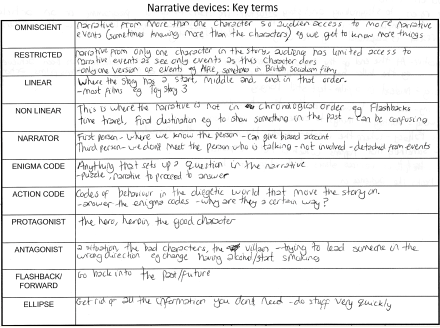 Narrative devices: Key terms
OMNISCIENT
narrative from more than one character so audience access to more narrative
events (sometimes knowing more than the characters) eg we get to know more things
RESTRICTED
narrative from only one character in the story, audience has limited access to
narrative events as see only events as this character does
-only one version of events eg Alfie, sometimes in British socialism films
LINEAR
Where the story has a start, middle and end in that order.
-most films eg Toy Story 3
NON LINEAR
This is where the narrative is not in chronological order eg Flashbacks
time travel, Final destination eg to show something in the past - can be confusing
NARRATOR
First person - where we know the person - can give biased account
Third person - we don't meet the person who is talking - not involved - detached from events
ENIGMA CODE
Anything that sets up a question in the narrative
-puzzle, narrative to proceed to answer
ACTION CODE
Codes of behaviour in the diegetic world that move the story on.
-answer the enigma codes - why are they a certain way?
PROTAGONIST
the hero, heroin, the good character
ANTAGONIST
a situation, the bad characters, the villain - trying to lead someone in the
wrong direction eg change having alcohol/start smoking
FLASHBACK/
FORWARD
Go back into the past/future
ELLIPSE
Get rid of all the information you dont need - do stuff very quickly